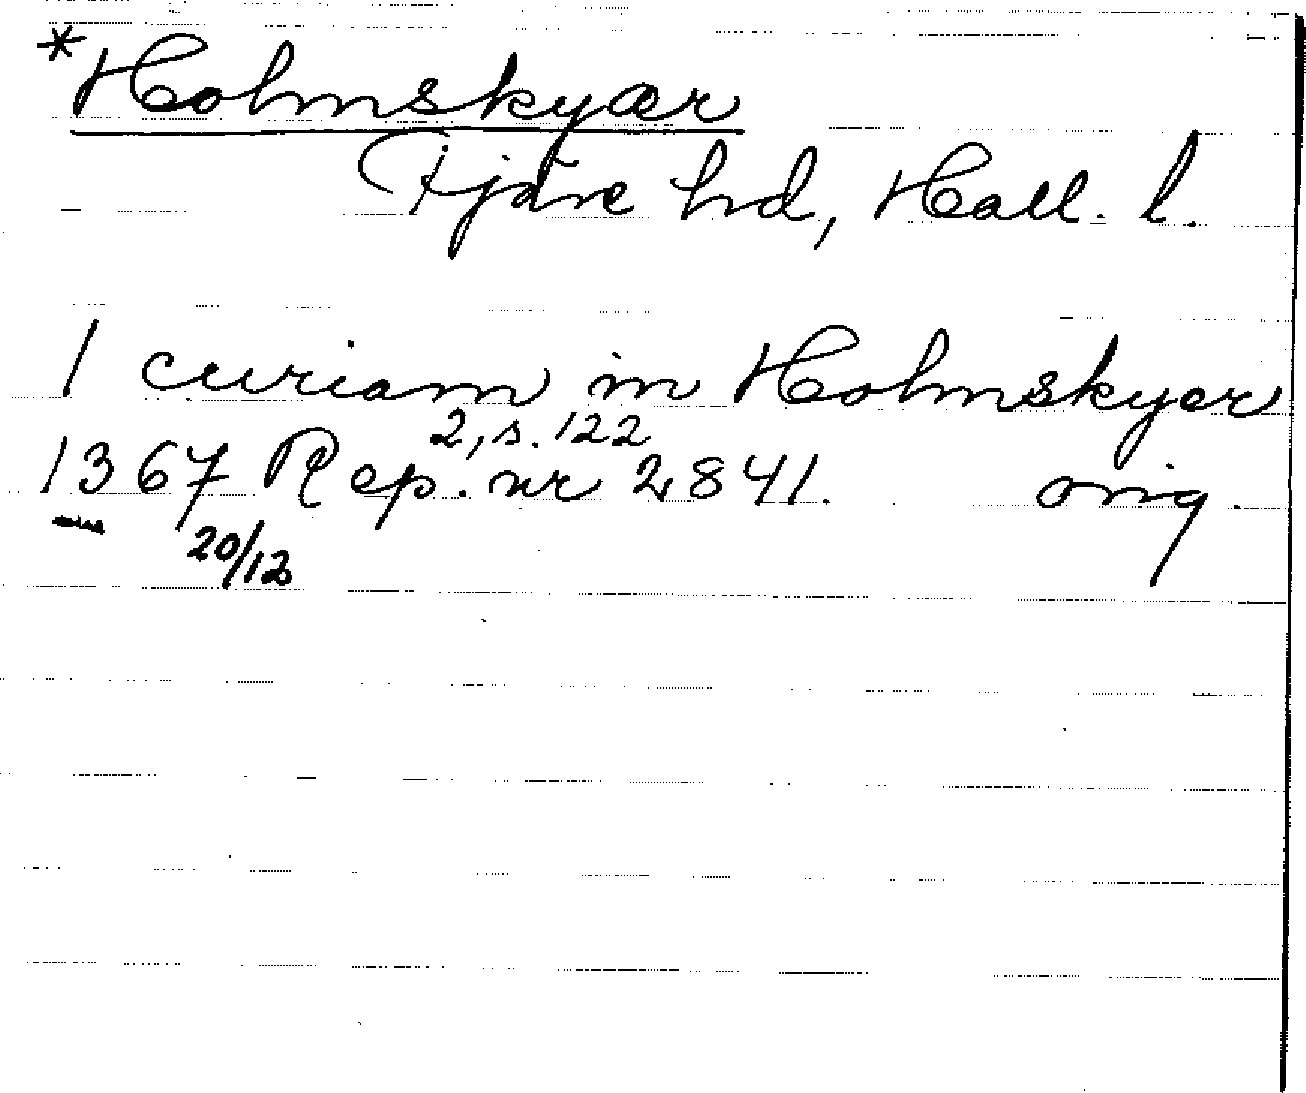 *Holmskyær
Fjäre hd, Hall. l.
1 curiam in Holmskyær
2, s. 122
1367 Rep. nr 2841. orig.
20/12